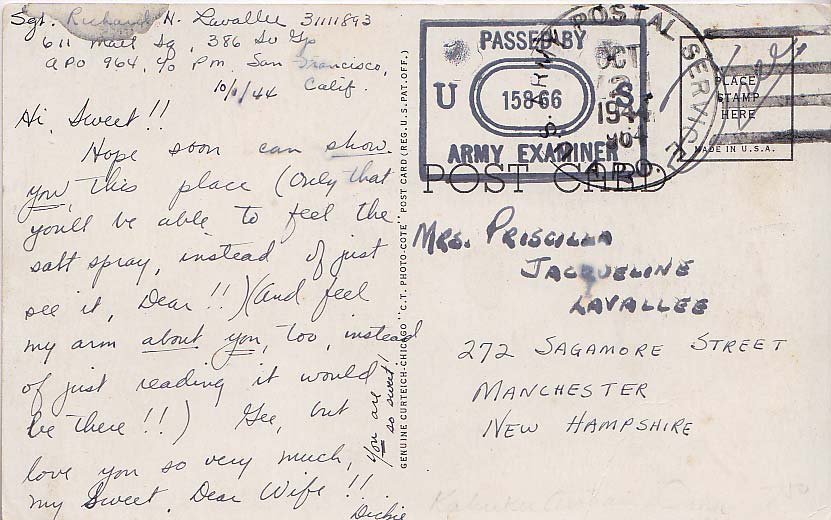 Sgt. Richard H. Lavallee 31111893
611 Mail Sq, 386 Sv Gp
APO 964, c/o PM, San Francisco,
10/1/44 Calif.
Hi, Sweet!!
Hope soon can show
you, this place (only that
you'll be able to feel the
salt spray, instead of just
see it, Dear!!) (and feel
my arm about you, too, instead
of just reading it would
be there!!) Gee, but
love you so very much,
my Sweet, Dear Wife!!
Dickie
You are
so sweet!
GENUINE CURTEICH-CHICAGO "C.T. PHOTO-COTE" POST CARD (REG. U.S. PAT. OFF.)
PASSED BY
U S
15866
ARMY EXAMINER
U.S. ARMY POSTAL SERVICE
OCT
2
194
964
A.P.O.
PLACE
STAMP
HERE
MADE IN U.S.A.
POST CARD
MRS. PRISCILLA
JACQUELINE
LAVALLEE
272 SAGAMORE STREET
MANCHESTER
NEW HAMPSHIRE